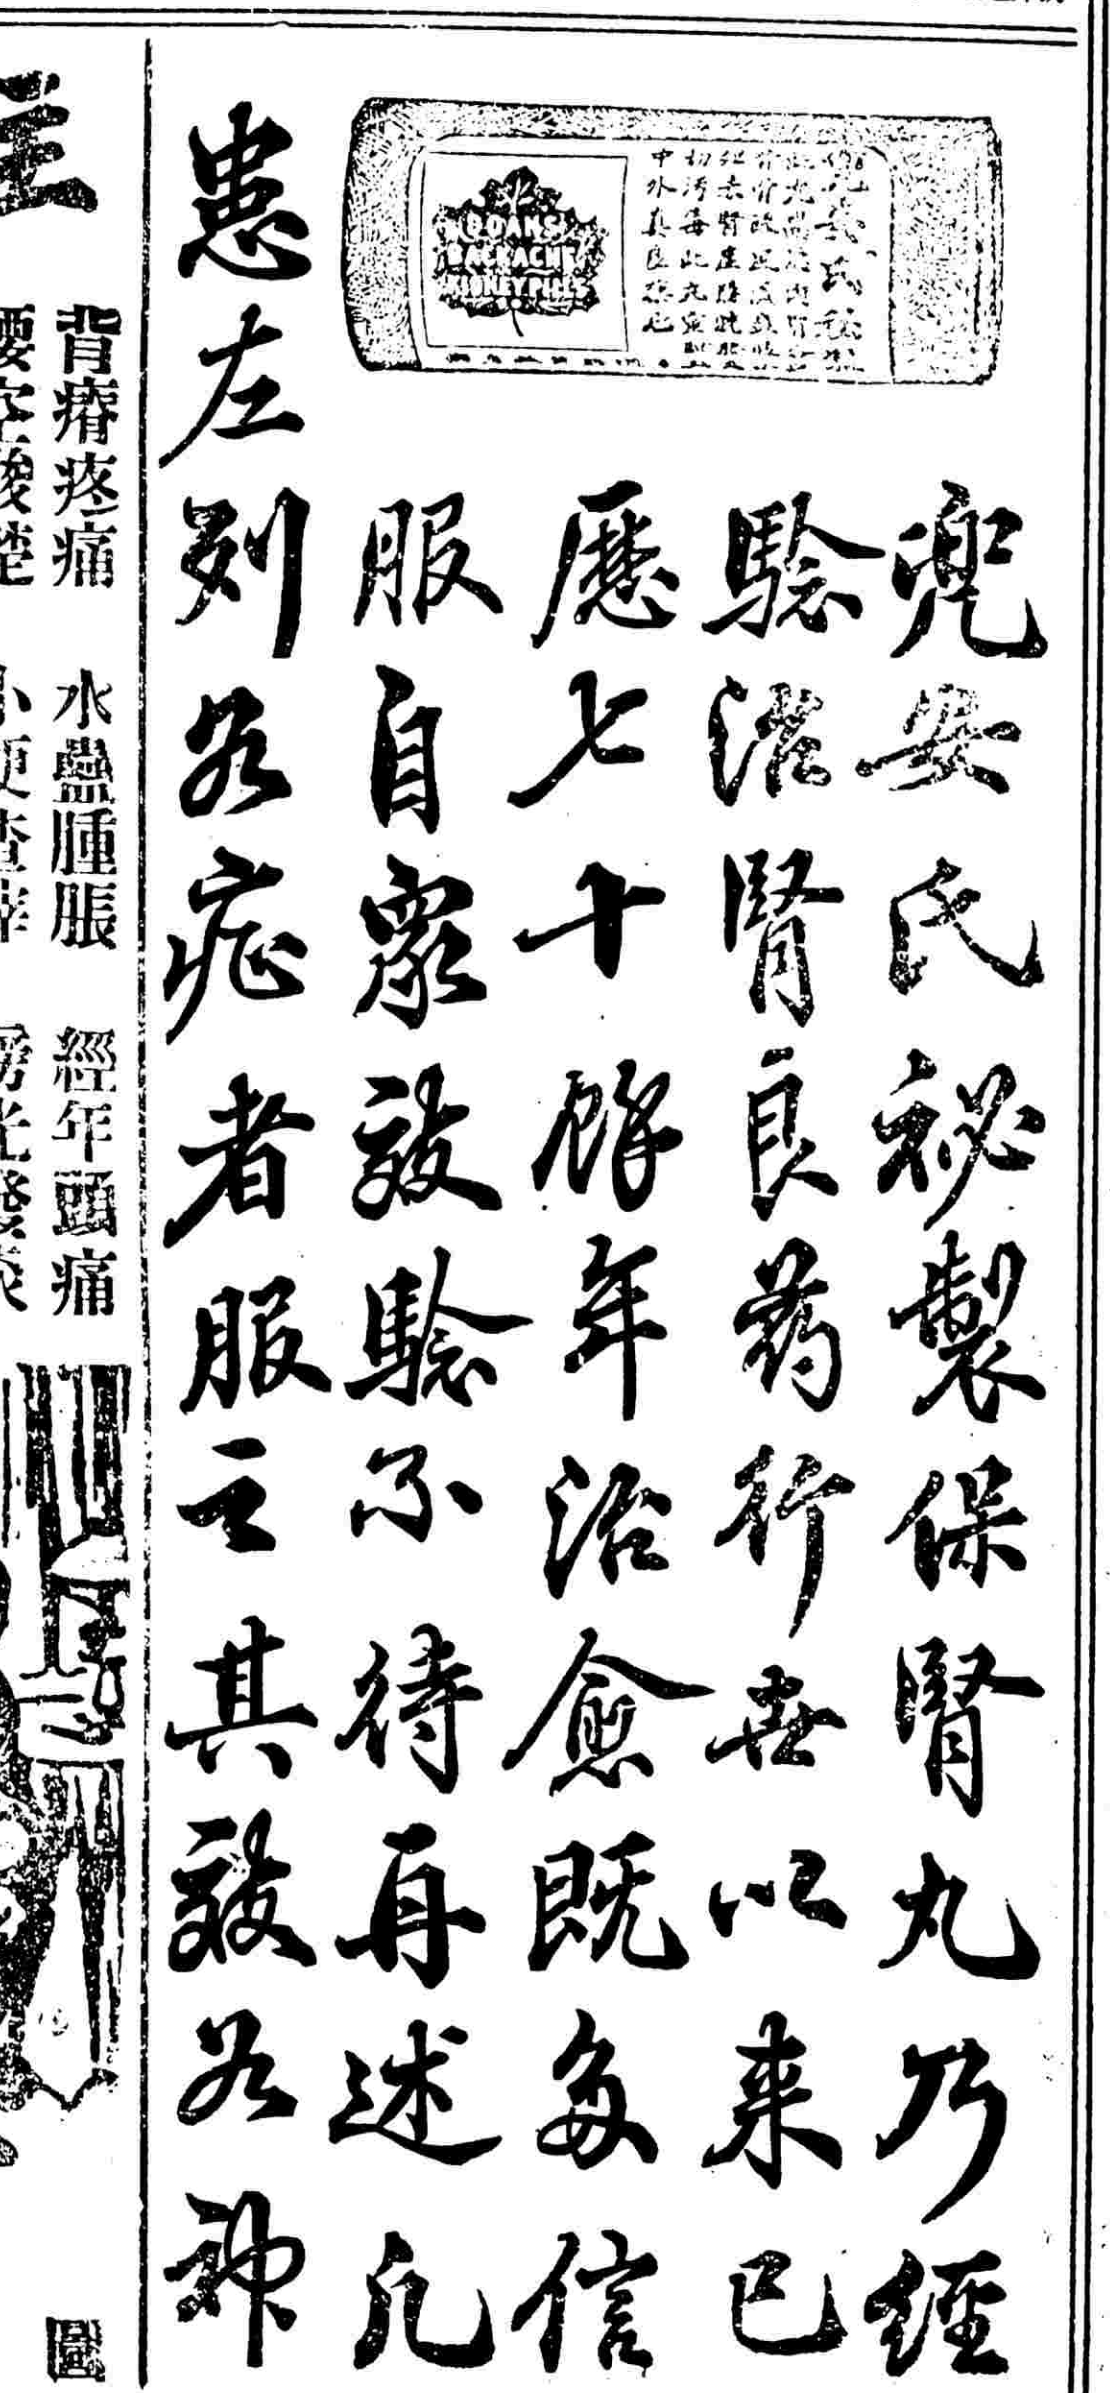 DOANS
BACKACHE
KIDNEY PILLS
兜安氏祕製保腎丸乃經
驗治腎良葯行世以來已
歷七十餘年治愈既多信
服自眾效驗不待再述凡
患左列各症者服之其效若神
背瘠疼痛 水蠱腫脹 經年頭痛 圖
腰空酸楚 小便渣滓